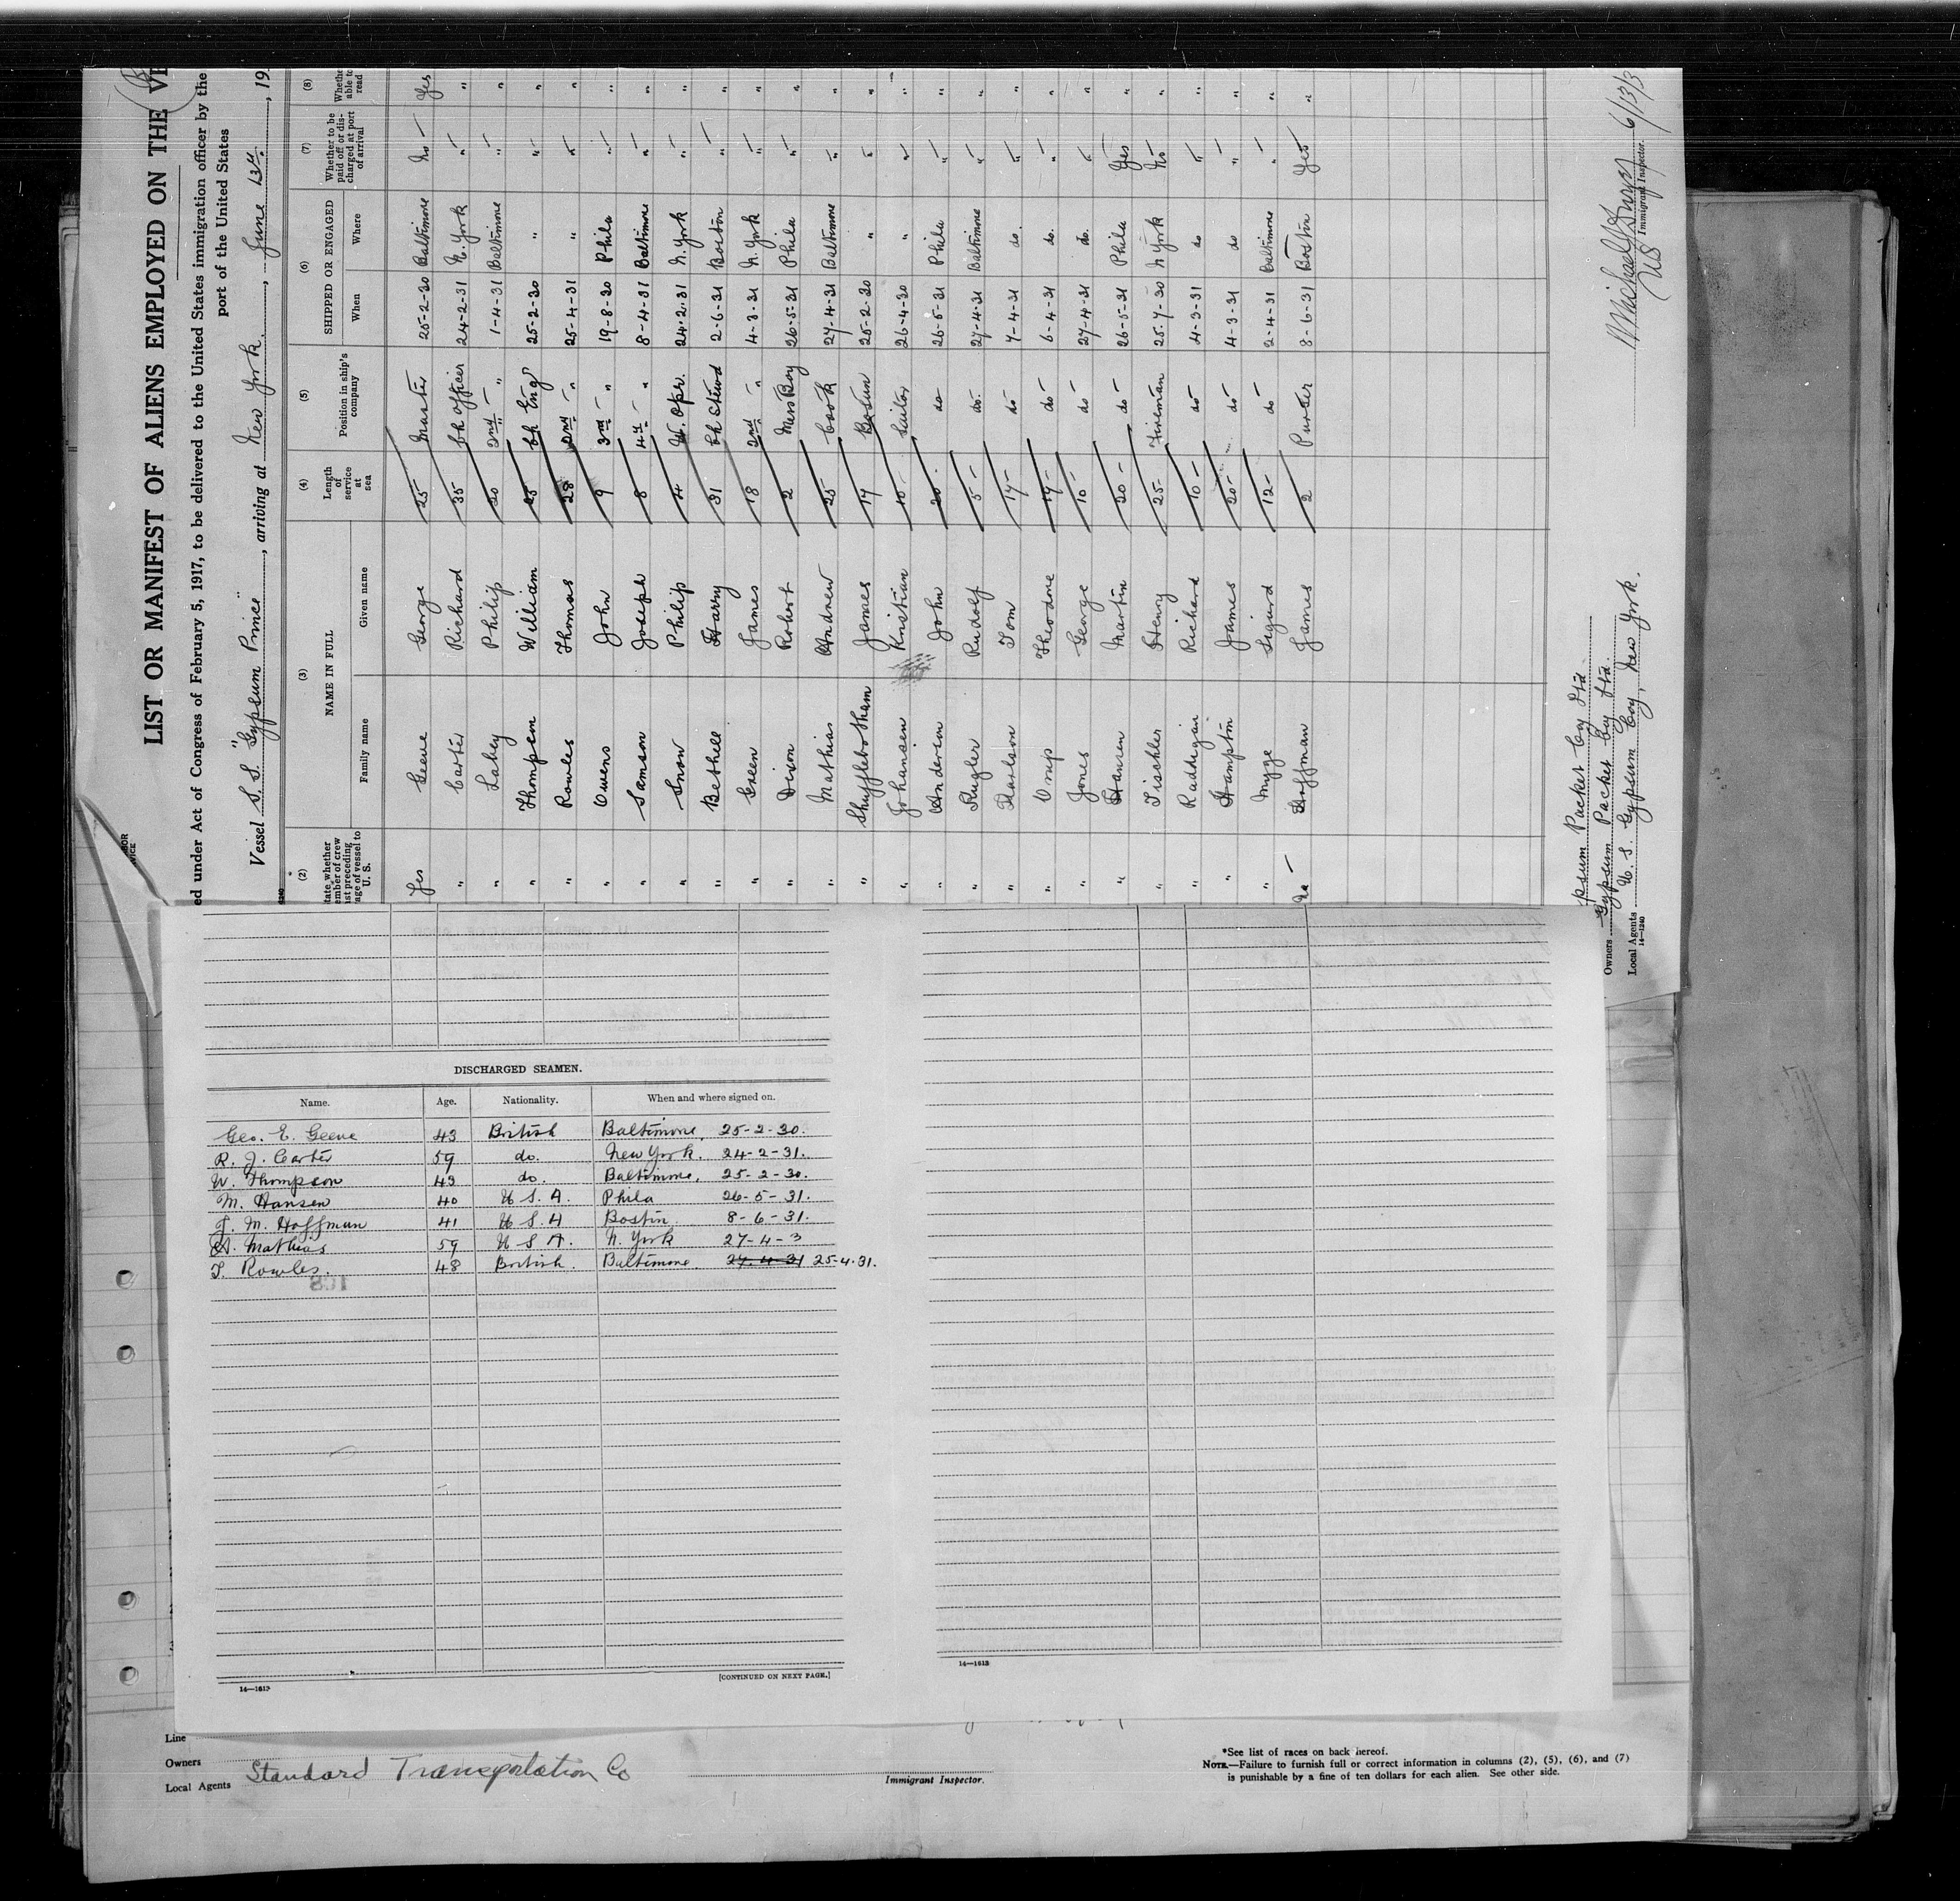 LIST OR MANIFEST OF ALIENS EMPLOYED ON THE
ed under Act of Congress of February 5, 1917, to be delivered to the United States immigration officer by the
port of the United States
Vessel S.S. "Gypsum Prince", arriving at New York, June 13th, 19
(2) (3) (4) (5) (6) (7) (8)
NAME IN FULL
Family name Given name
Length of service at sea
Position in ship's company
SHIPPED OR ENGAGED
When Where
Whether to be paid off or discharged at port of arrival
Whether able to read
Yes Geeve George 25 Master 25-2-30 Baltimore No Yes
" Carter Richard 35 Ch Officer 24-2-31 N. York " "
" Lahey Philip 20 2nd " 1-4-31 Baltimore " "
" Thompson William 25 Ch Eng 25-2-30 " " "
" Rowles Thomas 28 2nd " 25-4-31 " " "
" Owens John 9 3rd " 19-8-30 Phila " "
" Samson Joseph 8 4th " 8-4-31 Baltimore " "
" Snow Philip 4 W. Opr. 24-2-31 N. York " "
" Bethell Harry 31 Ch Stewd 2-6-31 Boston " "
" Green James 18 2nd " 4-3-31 N. York " "
" Dixon Robert 2 Mess Boy 26-5-31 Phila " "
" Mathias Andrew 25 Cook 27-4-31 Baltimore " "
" Shufflebotham James 17 Bosun 25-2-30 " " "
" Johansen Kristian 10 Sailor 26-4-30 " " "
" Anderson John 20 do 26-5-31 Phila " "
" Kugler Rudolf 5 do 27-4-31 Baltimore " "
" Karlson Tom 17 do 7-4-31 do. " "
" Theodore 19 do 6-4-31 do. " "
" Jones George 10 do 27-4-31 do. " "
" Hansen Martin 20 do 26-5-31 Phila Yes "
" Tischler Henry 25 Fireman 25-7-30 N York No "
" Raddigan Richard 10 do 4-3-31 do " "
" Hampton James 20 do 4-3-31 do " "
" Mygge Sigurd 12 do 2-4-31 Baltimore " "
No Hoffman James 2 Purser 8-6-31 Boston Yes "
psum Packet Coy Ltd.
Owners Gypsum Packet Coy Ltd.
Local Agents U. S. Gypsum Coy, New York.
14—1240
Immigrant Inspector. 6/13/3
DISCHARGED SEAMEN.
Name. Age. Nationality. When and where signed on.
Geo. E. Geeve 43 British Baltimore, 25-2-30.
R. J. Carter 59 do. New York. 24-2-31.
W. Thompson 43 do. Baltimore, 25-2-30.
M. Hansen 40 U S. A. Phila 26-5-31.
J. M. Hoffman 41 U S. A Boston. 8-6-31.
A. Mathias 59 U S A. N. York 27-4-3
T. Rowles. 48 British. Baltimore. 27.4.31 25-4.31.
[CONTINUED ON NEXT PAGE.]
14—1613
14—1613
Line
Owners
Local Agents Standard Transportation Co
Immigrant Inspector.
*See list of races on back hereof.
NOTE.—Failure to furnish full or correct information in columns (2), (5), (6), and (7)
is punishable by a fine of ten dollars for each alien. See other side.